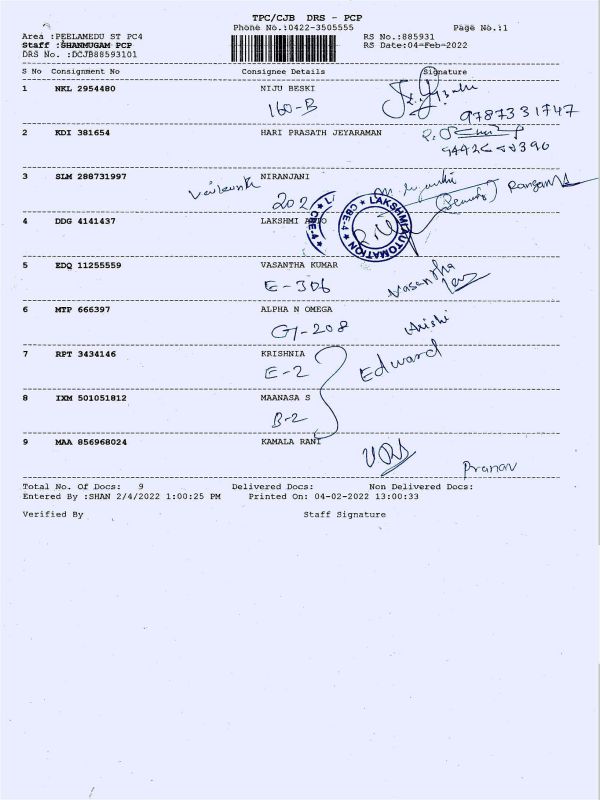 TPC/CJB DRS - PCP
Phone No.:0422-3505555 Page No.:1
Area :PEELAMEDU ST PC4 RS No.:885931
Staff :SHANMUGAM PCP RS Date:04-Feb-2022
DRS No. :DCJB88593101
S No Consignment No Consignee Details Signature
1 NKL 2954480 NIJU BESKI
160-B 9787331747
2 KDI 381654 HARI PRASATH JEYARAMAN
3 SLM 288731997 NIRANJANI
202
4 DDG 4141437 LAKSHMI
LAKSHMI AUTOMATION ★ CBE-4 ★
5 EDQ 11255559 VASANTHA KUMAR
E-306 Vasantha
6 MTP 666397 ALPHA N OMEGA
G1-208
7 RPT 3434146 KRISHNIA
E-2 Edward
8 IXM 501051812 MAANASA S
B-2
9 MAA 856968024 KAMALA RANI
Pranav
Total No. Of Docs: 9 Delivered Docs: Non Delivered Docs:
Entered By :SHAN 2/4/2022 1:00:25 PM Printed On: 04-02-2022 13:00:33
Verified By Staff Signature